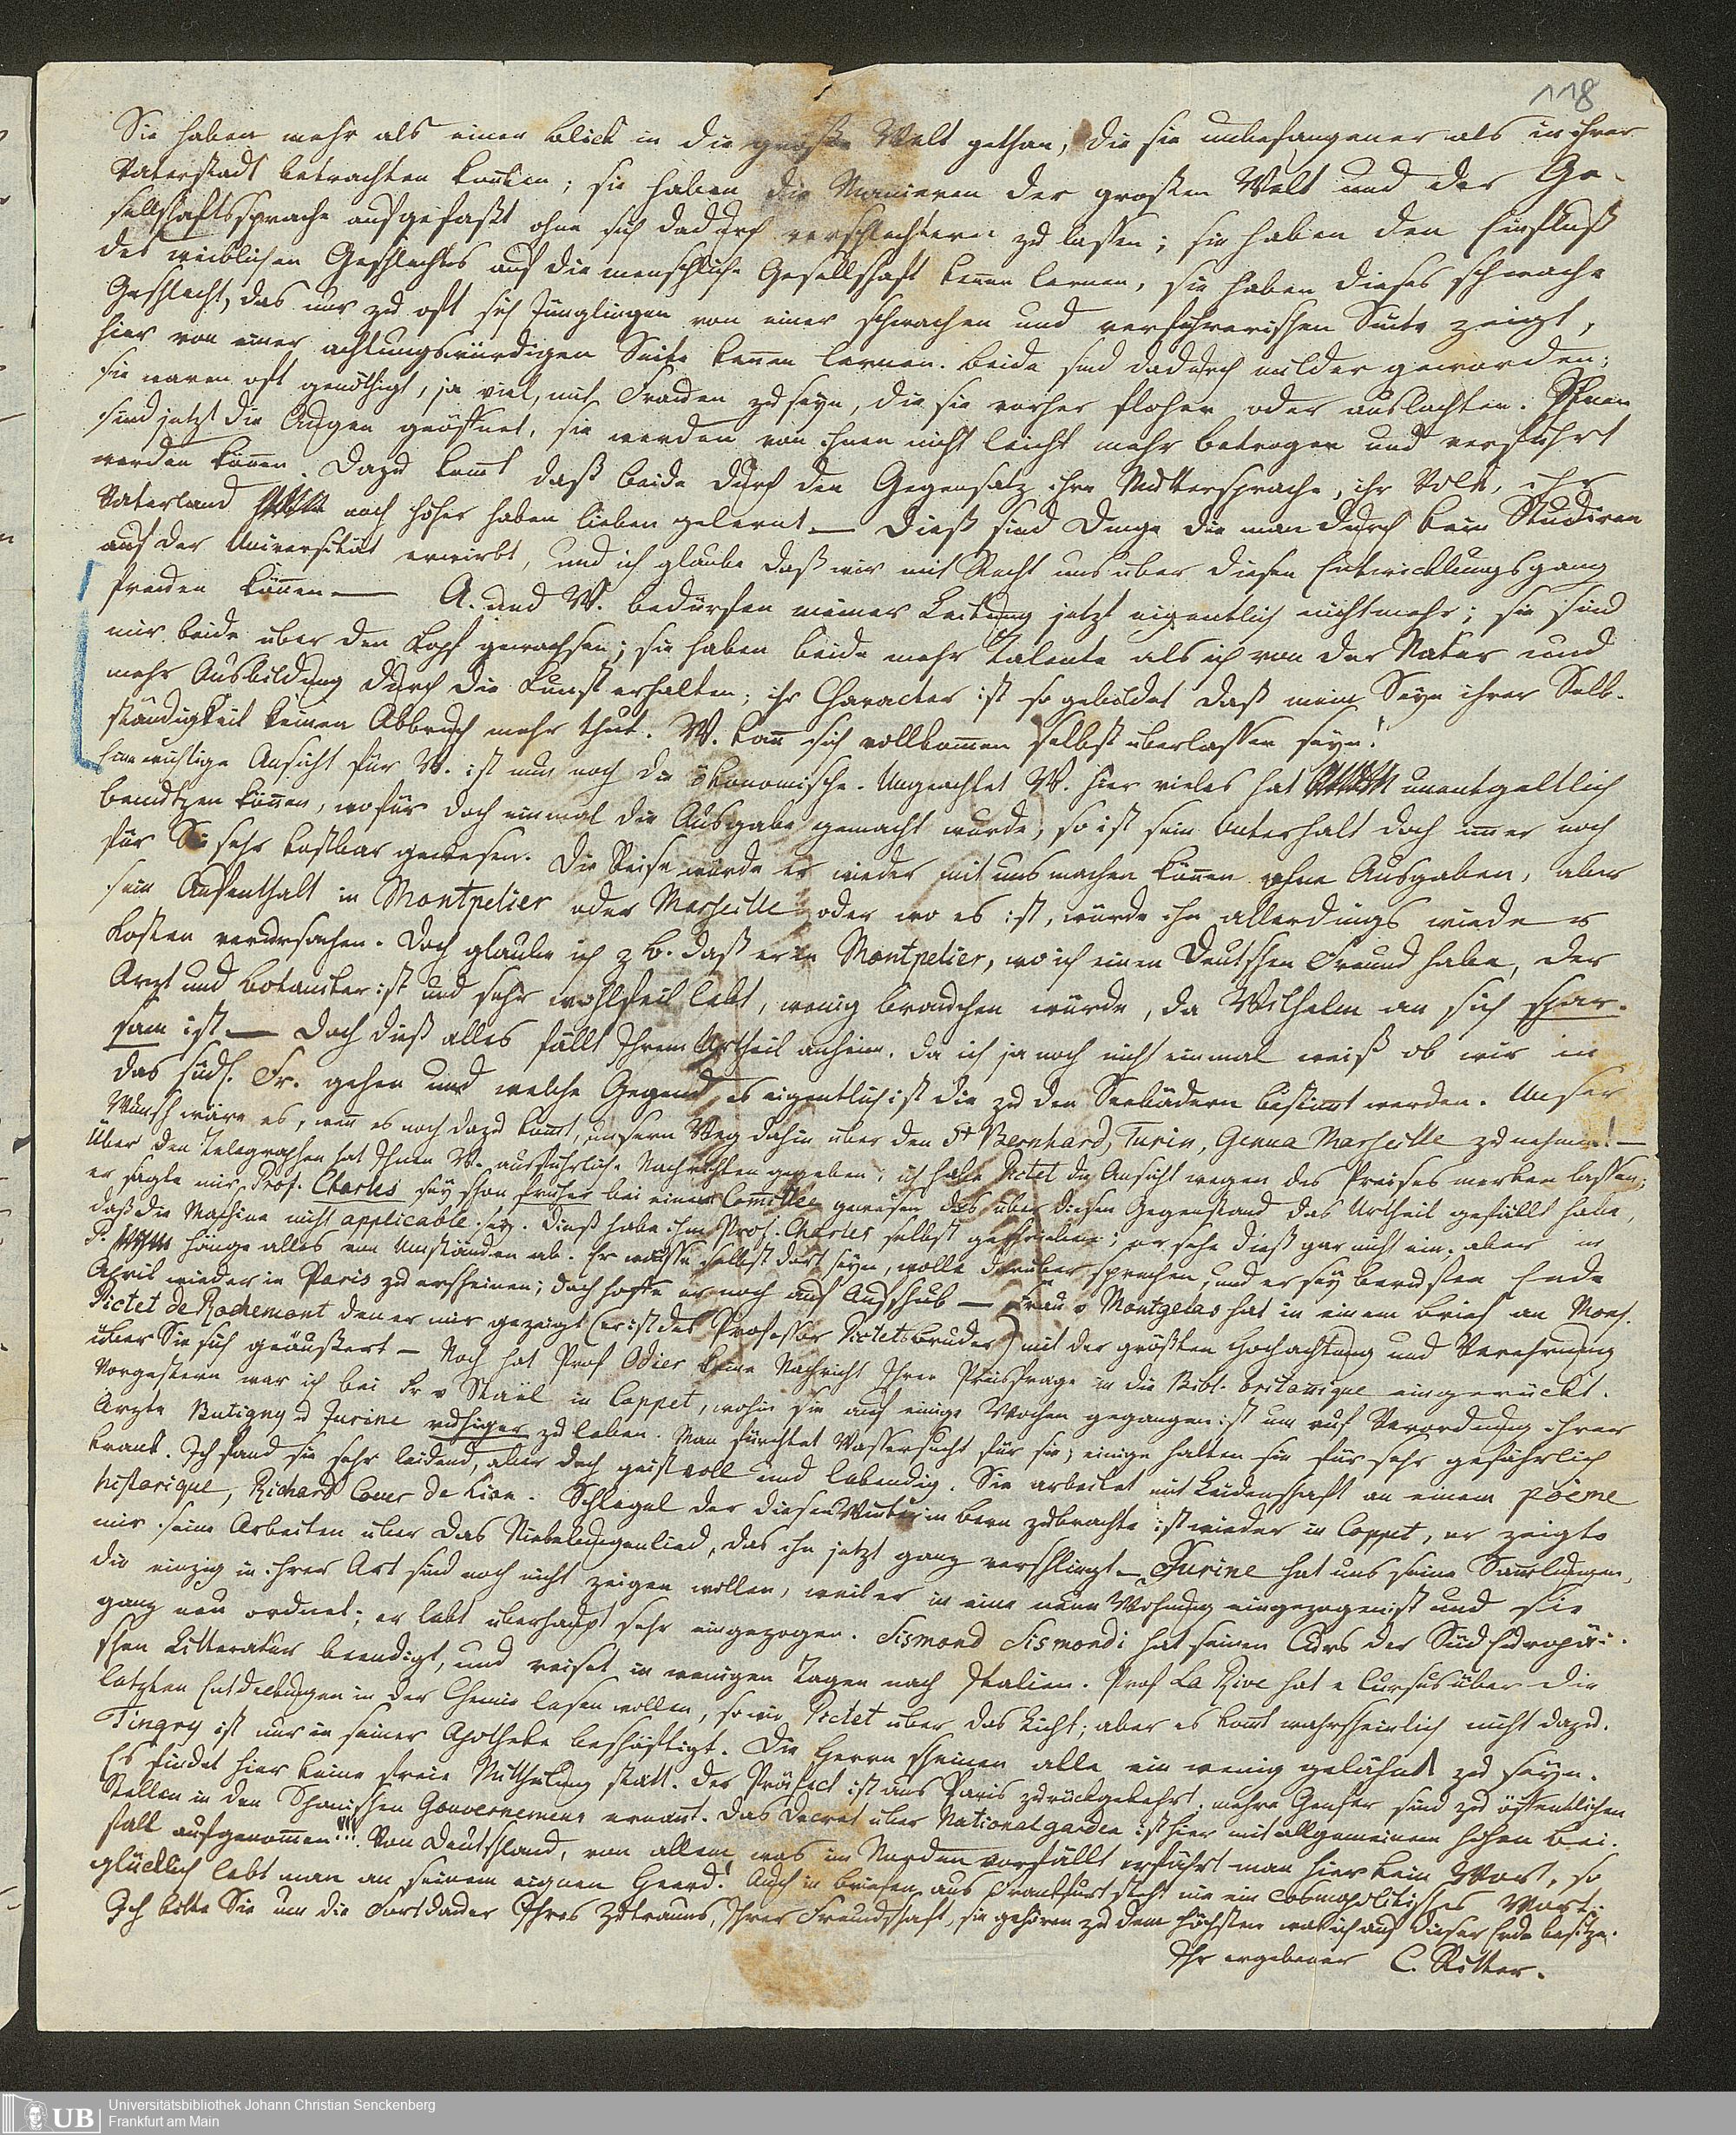 118
Sie haben mehr als einen Blick in die große Welt gethan, die sie unbefangener als in ihrer
Vaterstadt betrachten konten; sie haben die Manieren der großen Welt und der Ge-
sellschaftssprache aufgefaßt ohne sich dadurch verschlechtern zu lassen; sie haben den Einfluß
des weiblichen Geschlechtes auf die menschliche Gesellschaft kenen lernen, sie haben dieses schwache
Geschlecht, das nur zu oft sich Jünglingen von einer schwachen und verführerischen Seite zeigt,
hier von einer achtungswürdigen Seite kenen lernen. Beide sind dadurch milder geworden;
sie waren oft genöthigt, ja viel, mit Frauen zu seyn, die sie vorher flohen oder auslachten. Ihnen
sind jetzt die Augen geöffnet, sie werden von ihnen nicht leicht mehr betrogen und verführt
werden könen. Dazu komt daß beide durch den Gegensatz ihre Muttersprache, ihr Volk, ihr
Vaterland noch höher haben lieben gelernt — Dieß sind Dinge die man durch kein Studiren
auf der Universität erwirbt, und ich glaube daß wir mit Recht uns über diesen Entwicklungsgang
freuen könen — A. und W. bedürfen meiner Leitung jetzt eigentlich nicht mehr; sie sind
mir beide über den Kopf gewachsen; sie haben beide mehr Talente als ich von der Natur und
mehr Ausbildung durch die Kunst erhalten; ihr Character ist so gebildet daß mein Seyn ihrer Selb-
ständigkeit keinen Abbruch mehr thut. W. kan sich vollkomen selbst überlassen seyn!
Eine wichtige Ansicht für W. ist nun noch die ökonomische. Ungeachtet W. hier vieles hat unentgeltlich
benutzen könen, wofür doch einmal die Ausgabe gemacht wurde, so ist sein Unterhalt doch imer noch
für Sie sehr kostbar gewesen. Die Reise würde er wieder mit uns machen könen ohne Ausgaben, aber
sein Aufenthalt in Montpelier oder Marseille oder wo es ist, würde ihn allerdings wieder
Kosten verursachen. Doch glaube ich z B. daß er in Montpelier, wo ich einen Deutschen Freund habe, der
Arzt und Botaniker ist und sehr wohlfeil lebt, wenig brauchen würde, da Wilhelm an sich spar-
sam ist — Doch dieß alles fällt Ihrem Urtheil anheim. Da ich ja noch nicht einmal weiß ob wir in
das südl. Fr. gehen und welche Gegend es eigentlich ist die zu den Seebädern bestimt werden. Unser
Wunsch wäre es, wen es noch dazu komt, unsern Weg dahin über den St Bernhard, Turin, Genua Marseille zu nehmen! —
Über den Telegraphen hat Ihnen W. ausführliche Nachrichten gegeben; ich habe Pictet die Ansicht wegen des Preises merken lassen;
er sagte mir, Prof. Charles sey schon früher bei einem Comittee gewesen das über diesen Gegenstand das Urtheil gefällt habe,
daß die Machine nicht applicable sey. Dieß habe ihm Prof. Charles selbst geschrieben; er sehe dieß gar nicht ein. aber in
P. hänge alles von Umständen ab. Er müsse selbst dort seyn, wolle darüber sprechen, und er sey berufen Ende
April wieder in Paris zu erscheinen; doch hoffe er noch auf Aufschub — Frau v Montgelas hat in einem Brief an Mons.
Pictet de Rochemont den er mir gezeigt (er ist des Professor Pictets Bruder) mit der größten Hochachtung und Verehrung
über Sie sich geäußert — Noch hat Prof Odier keine Nachricht Ihrer Preisfrage in die Bibl. britanique eingerückt.
Vorgestern war ich bei Fr v Staël in Coppet, wohin sie auf einige Wochen gegangen ist um auf Verordnung ihrer
Ärzte Butigny u Jurine ruhiger zu leben. Man fürchtet Wassersucht für sie; einige halten sie für sehr gefährlich
krank. Ich fand sie sehr leidend, aber doch geistvoll und lebendig. Sie arbeitet mit Leidenschaft an einem poëme
historique, Richard Coeur de Lion. Schlegel der diesen Winter in Bern zubrachte ist wieder in Coppet, er zeigte
mir seine Arbeiten über das Niebelungenlied, das ihn jetzt ganz verschlingt — Jurine hat uns seine Samlungen,
die einzig in ihrer Art sind noch nicht zeigen wollen, weil er in eine neue Wohnung eingezogen ist und sie
ganz neu ordnet; er lebt überhaupt sehr eingezogen. Sismond Sismondi hat seinen Curs der Süd Europäi-
schen Litteratur beendigt, und reiset in wenigen Tagen nach Italien. Prof La Rive hat e Cursus über die
letzten Entdeckungen in der Chemie lesen wollen, so wie Pictet über das Licht; aber es komt wahrscheinlich nicht dazu.
Tingry ist nur in seiner Apotheke beschäftigt. Die Herrn scheinen alle ein wenig gelähmt zu seyn.
Es findet hier keine freie Mittheilung statt. Der Präfect ist aus Paris zurückgekehrt; mehre Genfer sind zu öffentlichen
Stellen in den Spanischen Gouvernemens ernant. Das Decret über Nationalgarden ist hier mit allgemeinem hohen Bei-
fall aufgenommen!!! Von Deutschland, von allem was im Norden vorfällt erfährt man hier kein Wort, so
glücklich lebt man an seinem eignen Heerd! Auch in Briefen aus Frankfurt steht nie ein cosmopolitisches Wort.
Ich bitte Sie um die Fortdauer Ihres Zutrauns, Ihrer Freundschaft, sie gehören zu dem höchsten was ich auf dieser Erde besitze.
Ihr ergebener C. Ritter.
UB
Universitätsbibliothek Johann Christian Senckenberg
Frankfurt am Main